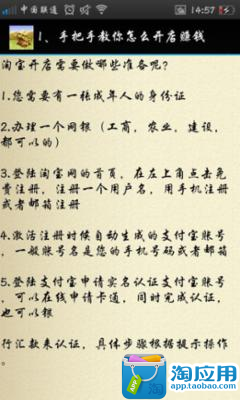 中国联通
14:57
1、手把手教你怎么开店赚钱
淘宝开店需要做哪些准备呢?
1.您需要有一张成年人的身份证
2.办理一个网银（工商，农业，建设，
都可以的）
3.登陆淘宝网的首页，在左上角点击免
费注册，注册一个用户名，用手机注册
或者邮箱注册
4.激活注册时候自动生成的支付宝账号
，一般账号名是您的手机号码或者邮箱
5.登陆支付宝申请实名认证支付宝账号
，可以在线申请卡通，同时完成认证，
也可以银
行汇款来认证，具体步骤根据提示操作
。
淘应用
app.taobao.com